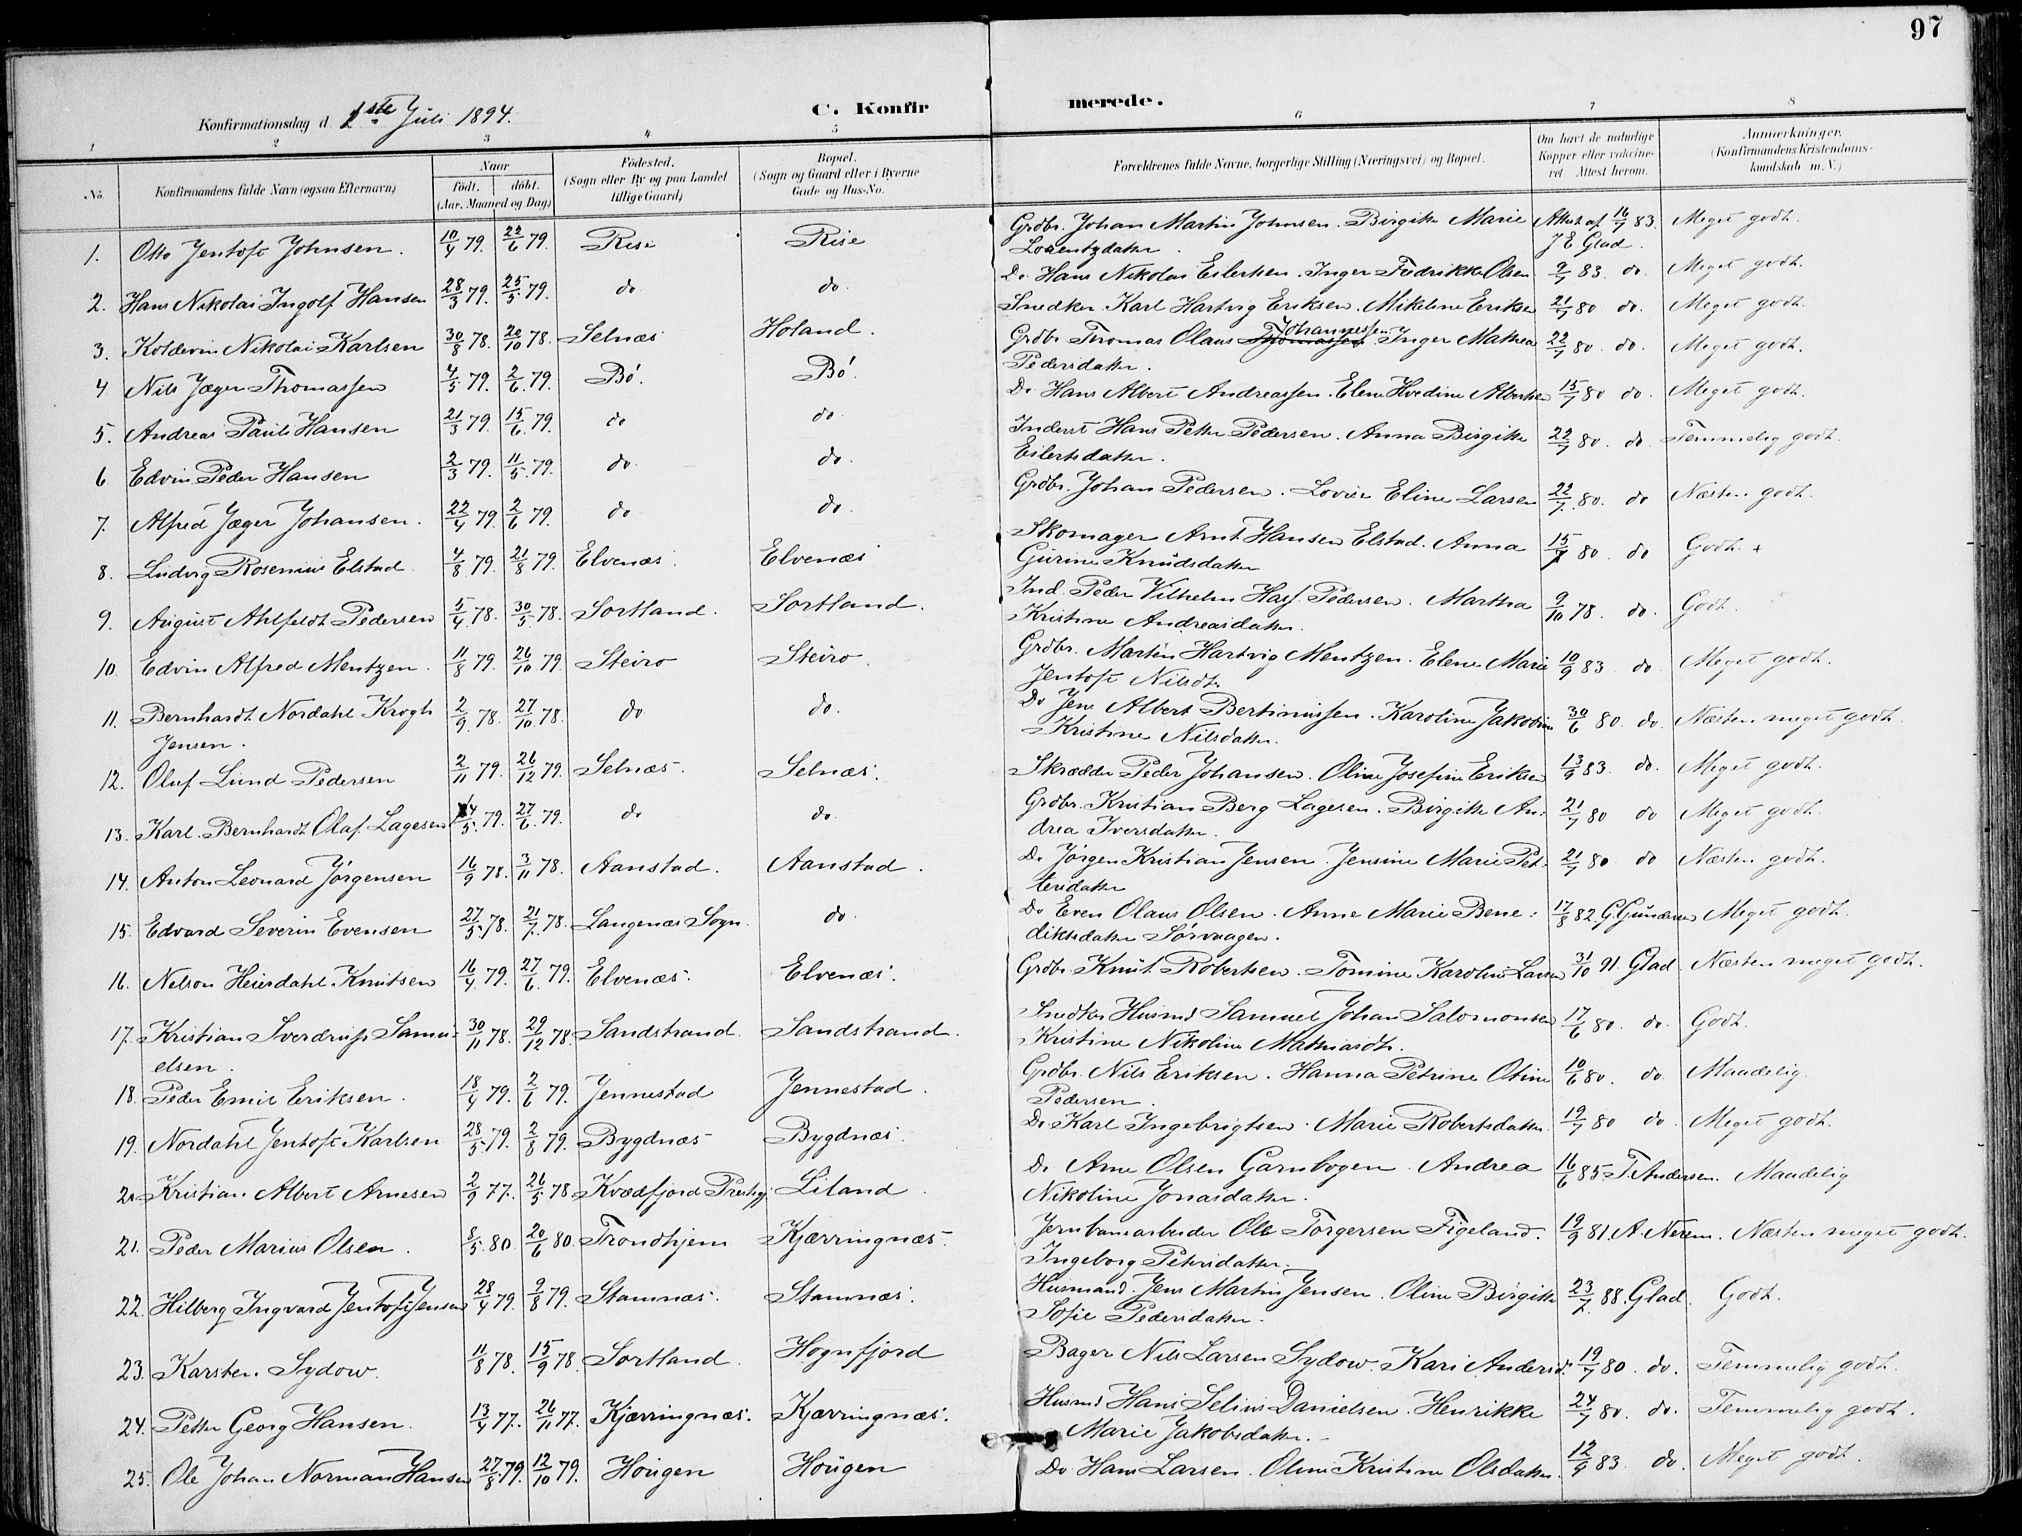 97
Konfirmationsdag d. 1ste Juli 1894.
C. Konfirmerede.
1 2 3 4 5 6 7 8
No. Konfirmandens fulde Navn (ogsaa Efternavn) Naar født. døbt. (Aar, Maaned og Dag) Födested. (Sogn eller By og paa Landet tillige Gaard) Bopæl. (Sogn og Gaard eller i Byerne Gade og Hus-No. Forældrenes fulde Navne, borgerlige Stilling (Næringsvei) og Bopæl. Om havt de naturlige Kopper eller vakcineret. Attest herom. Anmærkninger. (Konfirmandens Kristendomskundskab m. V.)
1. Otto Jentoft Johnsen. 10/4 79. 22/6 79. Rise Rise Grdbr. Johan Martin Johnsen. Birgitte Marie Attest af 16/7 83. Meget godt.
Lorentzdatter J E Glad.
2. Hans Nikolai Ingolf Hansen 28/3 79. 25/5 79. do do. Do Hans Nikolai Eilertsen. Inger Fredrikke Olsen 9/7 83. do. Meget godt.
3. Koldevin Nikolai Karlsen 30/8 78. 20/10 78. Selnæs Holand. Snedker Karl Hartvig Eriksen. Mikeline Eriksen 21/7 80 do. Meget godt.
4 Nils Jæger Thomassen 4/5 79. 2/6 79. Bö. Bö. Grdbr Thomas Olaus Johannessen Inger Mathea 22/7 80. do. Meget godt.
Pedersdatter.
5. Andreas Pauli Hansen 21/3 79. 15/6 79. do do. Do Hans Albert Andreassen. Elen Hvedine Albertsen 15/7 80 do. Meget godt.
6 Edvin Peder Hansen 2/3 79. 11/5 79. do. do. Inderst Hans Petter Pedersen. Anna Birgitte 22/7 80. do. Temmelig godt.
Eilertsdatter.
7. Alfred Jæger Johansen. 22/4 79. 2/6 79. do do. Grdbr. Johan Pedersen. Lovise Eline Larsen 22/7 80. do Næsten godt.
8. Ludvig Rosenius Elstad 4/8 79. 21/8 79. Elvenæs. Elvenæs Skomager Arnt Hansen Elstad. Anna 15/7 80 do Godt. +
Gurine Knudsdatter
9. August Ahlfeldt Pedersen 5/4 78. 30/5 78. Sortland. Sortland. Ind. Peder Vilhelm Hass Pedersen. Martha 9/10 78. do. Godt.
Kristine Andreasdatter.
10. Edvin Alfred Mentzen. 11/8 79. 26/10 79. Steiro Steiro. Grdbr. Martin Hartvig Mentzen. Elene Marie 10/9 83 do Meget godt.
Jentoft Nilsdtr
11. Bernhardt Nordahl Krogh 2/9 78. 27/10 78. do do. Do Jens Albert Bertinussen. Karoline Jakobine 30/6 80. do. Næsten meget godt
Jensen. Kristine Nilsdatter.
12. Oluf Lund Pedersen 2/11 79. 26/12 79. Selnæs. Selnæs. Skrædder Peder Johansen. Oline Josefine Eriksen 13/9 83. do. Meget godt.
13. Karl Bernhardt Olaf Lagesen 14/5 79. 27/6 79. do do. Grdbr. Kristian Berg Lagesen. Birgitte An- 21/7 80 do Meget godt.
drea Iversdatter.
14. Anton Leonard Jörgensen 16/9 78. 3/11 78. Aanstad. Aanstad. Do Jörgen Kristian Jensen. Jensine Marie Pet- 21/7 80 do Næsten godt.
tersdatter
15. Edvard Severin Evensen 27/5 78. 21/7 78. Langenæs Sogn. do. Do Even Olaus Olsen. Anne Marie Bene- 17/8 82. G. Meget godt.
diktsdatter Sörvaagen.
16. Nelson Heierdahl Knutsen 16/4 79. 27/6 79. Elvenæs. Elvenæs. Grdbr. Knut Robertsen. Tomine Karoline Larsen 31/10 91. Glad. Næsten meget godt.
17. Kristian Sverdrup Samu- 30/11 78. 29/12 78. Sandstrand. Sandstrand. Snedker Husmd Samuel Johan Salomonsen 17/6 80. do. Godt.
elsen. Kristine Nikoline Mathiasdtr.
18. Peder Emil Eriksen. 18/4 79. 2/6 79. Jennestad Jennestad. Grdbr. Nils Eriksen. Hanna Petrine Oline 10/6 80. do. Maadelig.
Pedersen.
19. Nordahl Jentoft Karlsen 28/5 79. 2/8 79. Bygdnæs Bygdnæs. Do Karl Ingebrigtsen. Marie Robertsdatter. 19/7 80 do. Meget godt.
20 Kristian Albert Arnesen 2/9 77. 26/5 78 Kvædfjord Prestgj. Liland. Do Arne Olsen Garnbogen. Andrea 16/6 85 T. Andersen. Maadelig
Nikoline Jonasdatter.
21. Peder Marius Olsen. 8/5 80. 20/6 80. Trondhjem Kjærringnæs. Jernbanearbeider Ole Torgersen Figeland. 19/9 81. A. Næsten meget godt.
Ingeborg Petersdatter.
22. Hilberg Ingvard Jentoft Jensen 28/4 79. 9/8 79. Stamnæs. Stamnæs. Husmand Jens Martin Jensen. Oline Birgitte 23/7 88. Glad. Godt.
Sofie Pedersdatter.
23. Karsten Sydow. 11/8 78. 15/9 78. Sortland. Hognfjord Bager Nils Larsen Sydow. Kari Andersd. 19/7 80. do. Temmelig godt.
24. Petter Georg Hansen. 13/4 77. 26/11 77. Kjærringnæs. Kjærringnæs. Husmd Hans Selius Danielsen. Henrikke 24/7 80. do. Temmelig godt.
Marie Jakobsdatter.
25. Ole Johan Norman Hansen 27/8 79. 12/10 79. Hougen Hougen Do Hans Larsen. Oline Kristine Olsdatter. 12/9 83. do. Meget godt.